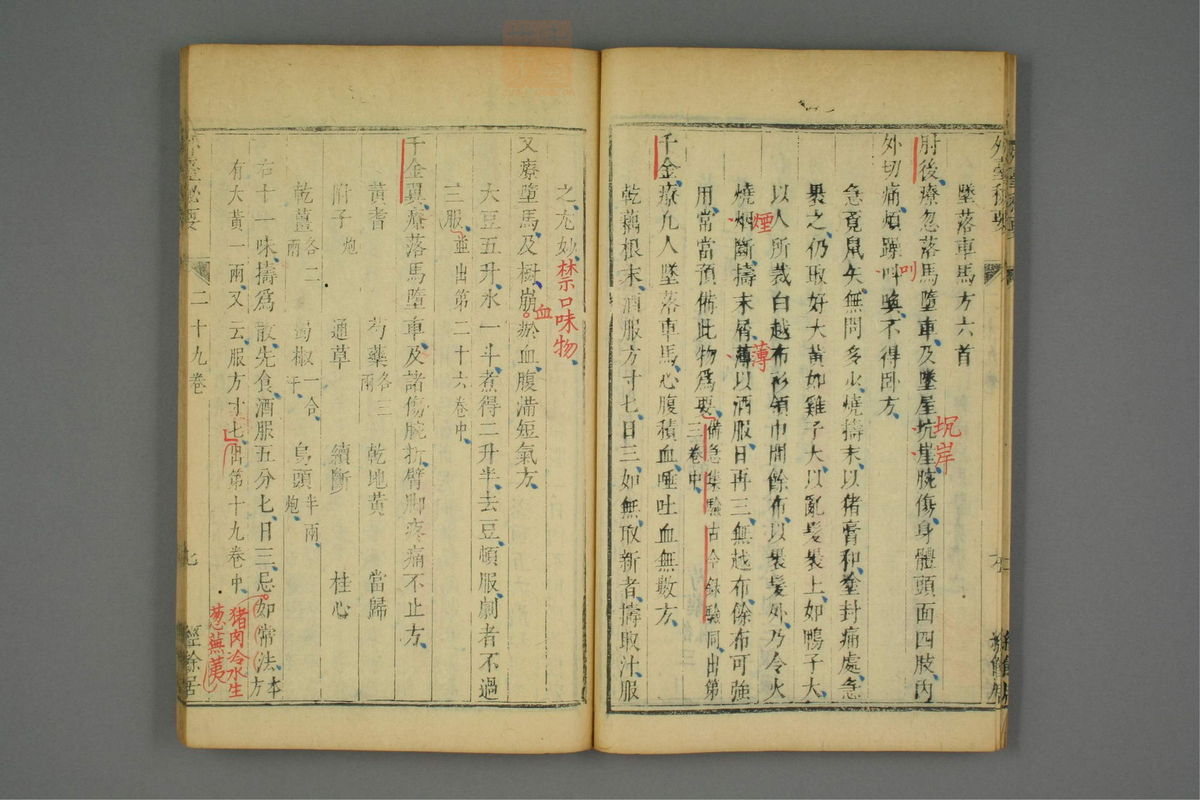 墜落車馬方六首
肘後療忽落馬墮車及墜屋坑崖腕傷身體頭面四肢内
外切痛煩躁叫喚不得卧方
急覓鼠矢無問多少燒擣末以猪膏和塗封痛處急
裹之仍取好大黃如雞子大以亂髮裹上如鴨子大
以人所裁白越布衫領巾間餘布以裹髮外乃令火
燒烟斷擣末屑薄以酒服日再三無越布餘布可強
用常當預備此物爲要備急集驗古今錄驗同出第
三卷中
千金療凡人墜落車馬心腹積血唾吐血無數方
乾藕根末酒服方寸匕日三如無取新者擣取汁服
坑岸
叫
煙
薄
之尤妙禁口味物
又療墮馬及樹崩瘀血腹滿短氣方
血
大豆五升水一斗煮得二升半去豆頓服劇者不過
三服並出第二十六卷中
千金翼療落馬墮車及諸傷腕折臂脚疼痛不止方
黃耆 芍藥各三兩 乾地黃 當歸
附子炮 通草 續斷 桂心
乾薑各二兩 蜀椒一合 烏頭半兩炮
右十一味擣爲散先食酒服五分匕日三忌如常法本方
有大黃一兩又云服方寸匕出第十九卷中
猪肉冷水生
葱蕪荑
二十九卷
七
經餘居